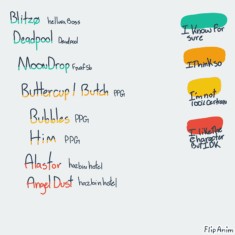 Blitzø helluva Boss
Deadpool Deadpool
MoonDrop Fnaf SB
Buttercup / Butch PPG
Bubbles PPG
Him PPG
Alastor hazbin hotel
Angel Dust hazbin hotel
I know for sure
I think so
I'm not 100% certain
I like the character But IDK
FlipAnim